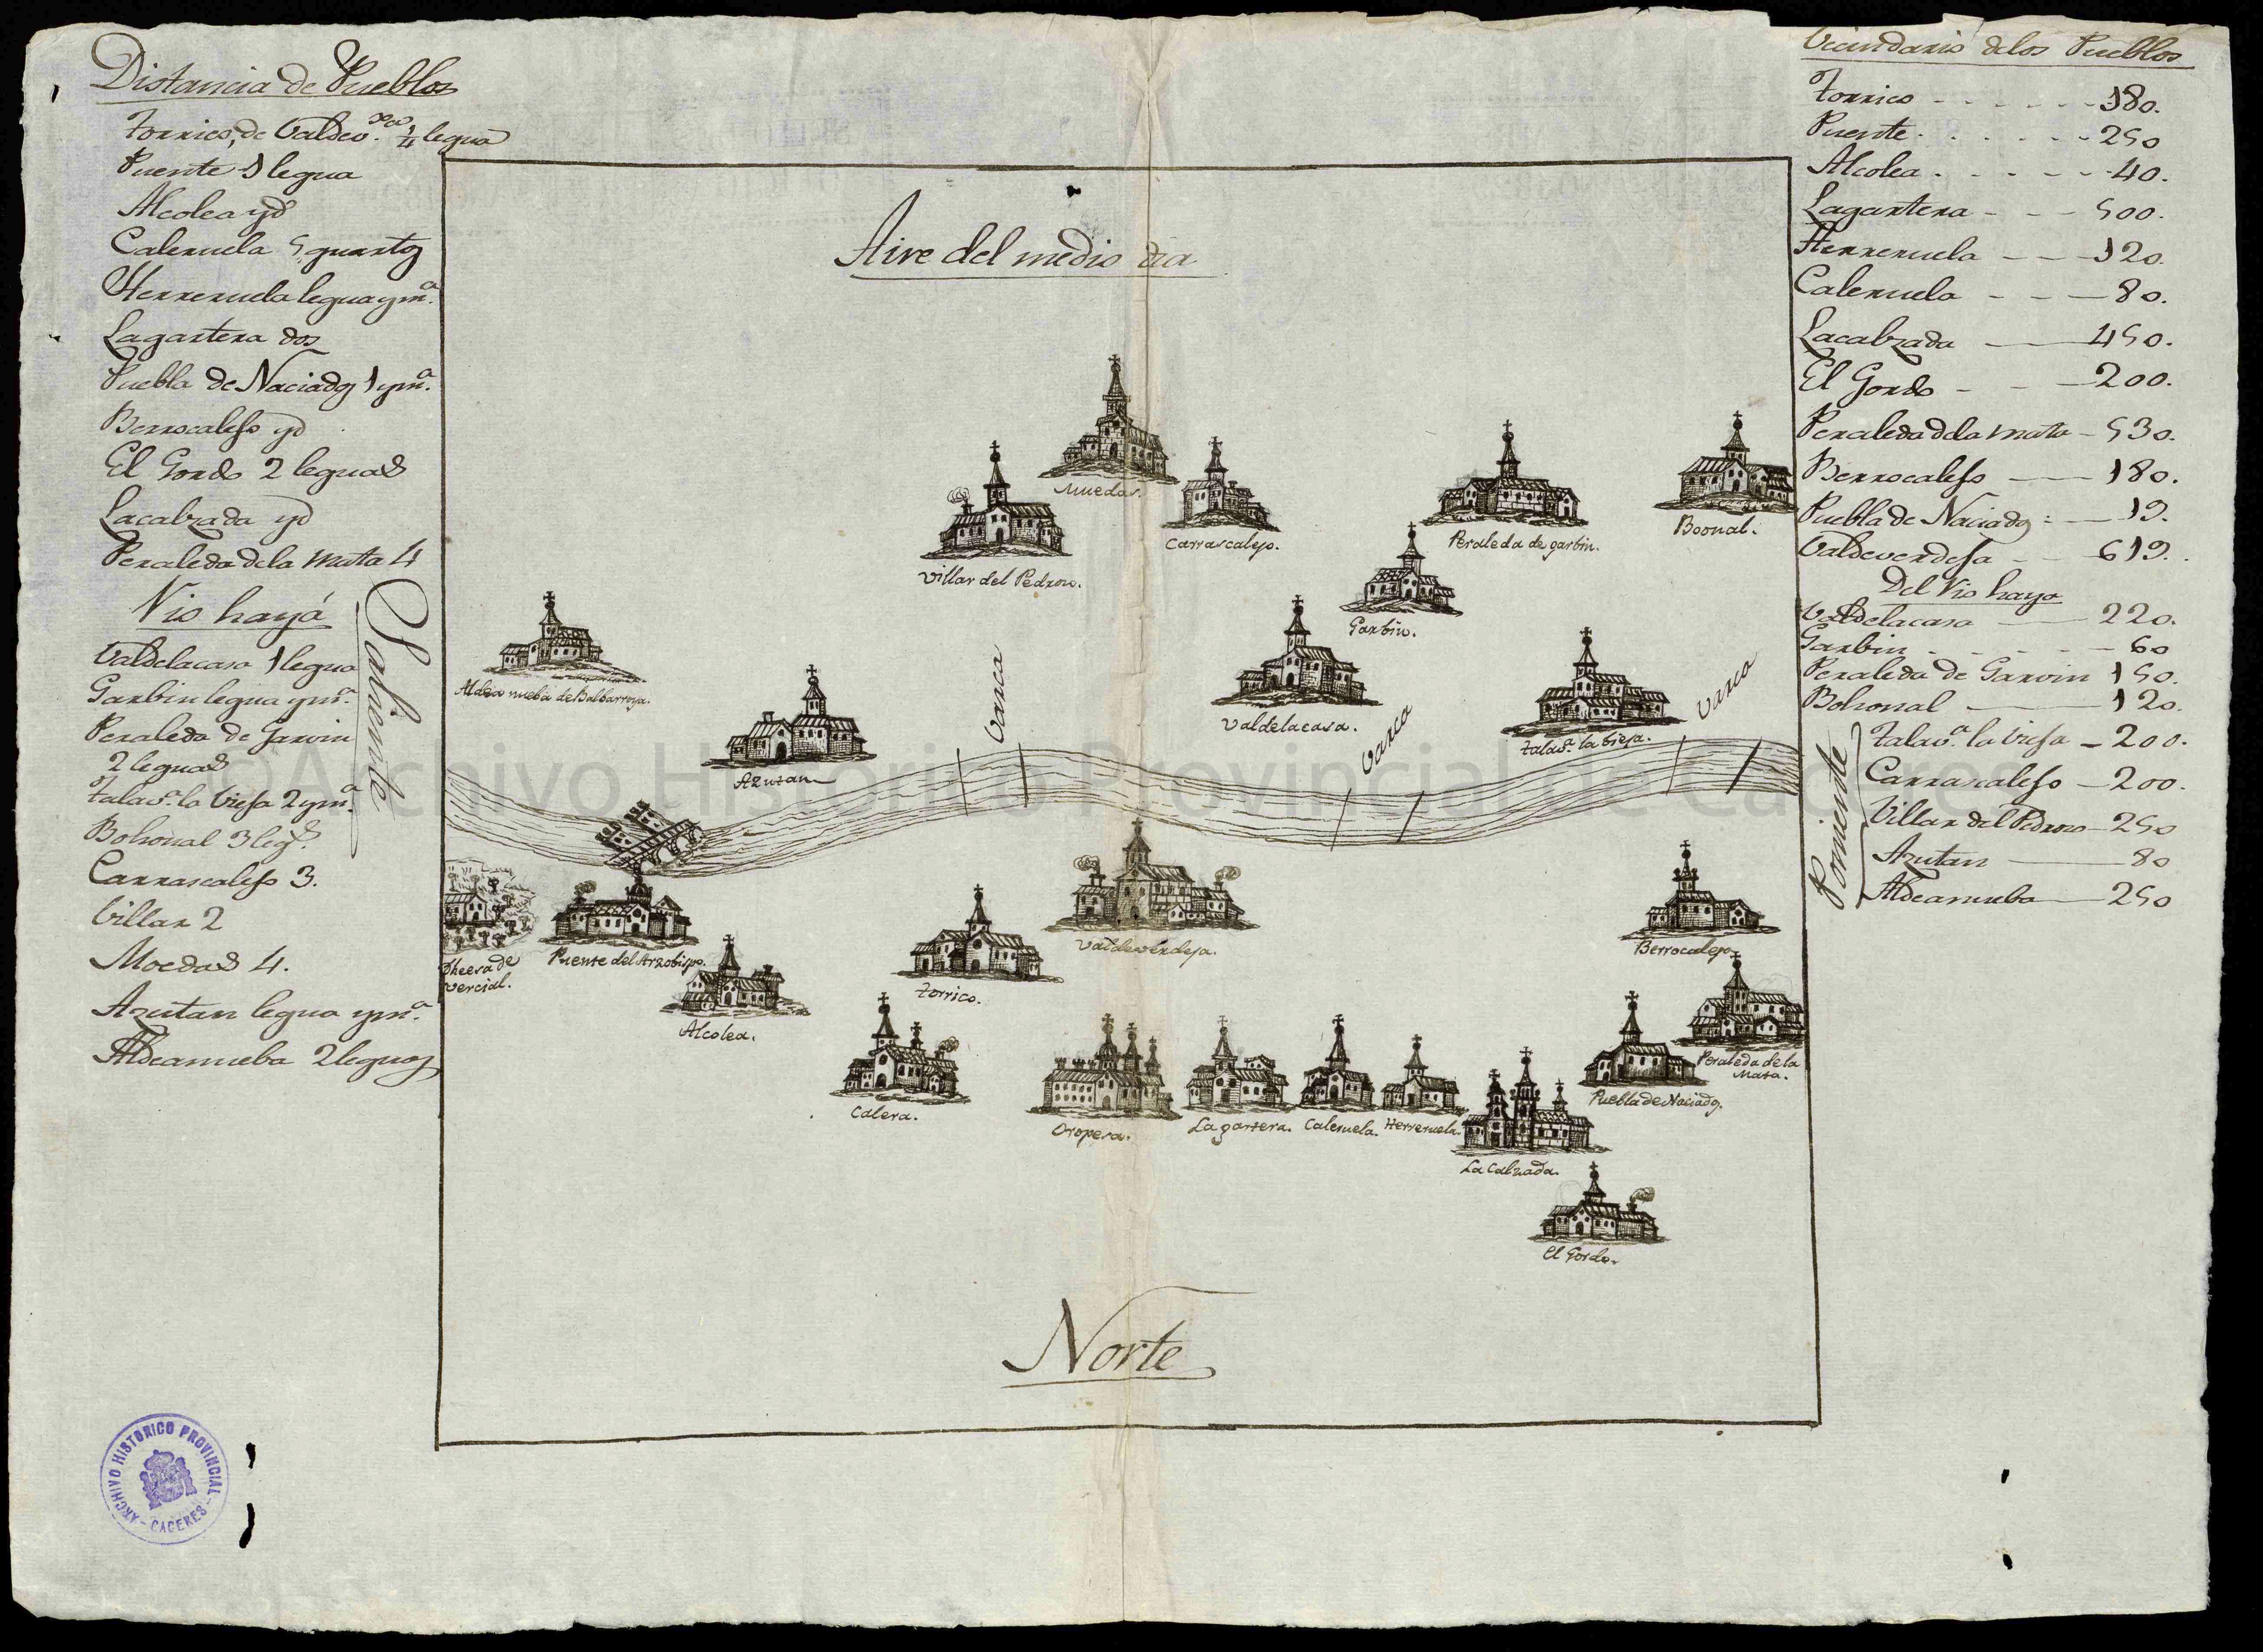 Distancia de Pueblos
Torrico, de Valdev.ᵃ ¼ legua
Puente 1 legua
Alcolea yd
Caleruela 5 quartos
Herreruela legua y m.ᵃ
Lagartera dos
Puebla de Naciados 1 y m.ᵃ
Berrocalejo yd
El Gordo 2 leguas
Lacalzada yd
Peraleda dela Mata 4
Rio haya
Valdelacasa 1 legua
Garbin legua y m.ᵃ
Peraleda de Garvin
2 leguas
Talav.ᵃ la Vieja 2 y m.ᵃ
Bohonal 3 leg.ˢ
Carrascalejo 3.
Villar 2
Moedas 4.
Azutan legua y m.ᵃ
Aldeanueba 2 leguas
Saliente
Aire del medio dia
Muedas.
Villar del Pedroso.
Carrascalejo.
Peraleda de garbin.
Boonal.
Garbin.
Aldea nueba de Balbarroya.
Azutan
Varca
Valdelacasa.
Varca
Talav.ᵃ la bieja.
Varca
Dheesa de
Vercial.
Puente del Arzobispo.
Alcolea.
Torrico.
Valdeverdeja.
Berrocalejo.
Calera.
Oropesa.
Lagartera.
Caleruela.
Herreruela.
La Calzada.
Puebla de Naciados.
Peraleda de la
Mata.
El Gordo.
Norte
Vecindario delos Pueblos
Torrico - - - - - - 180.
Puente. - - - - - - 250
Alcolea. - - - - - 40.
Lagartera - - - 500.
Herreruela - - - 120.
Caleruela - - - 80.
Lacalzada — 450.
El Gordo - - - 200.
Peraleda dela Mata - 530.
Berrocalejo — 180.
Puebla de Naciados : — 19.
Valdeverdeja — 619.
Del Rio haya
Valdelacasa — 220.
Garbin - - - - - 60
Peraleda de Garvin 150.
Bohonal — 120.
Talav.ᵃ la Vieja - 200.
Carrascalejo - 200.
Villar del Pedroso - 250
Azutan — 80
Aldeanueba — 250
Poniente
©Archivo Histórico Provincial de Cáceres
ARCHIVO HISTORICO PROVINCIAL - CACERES -